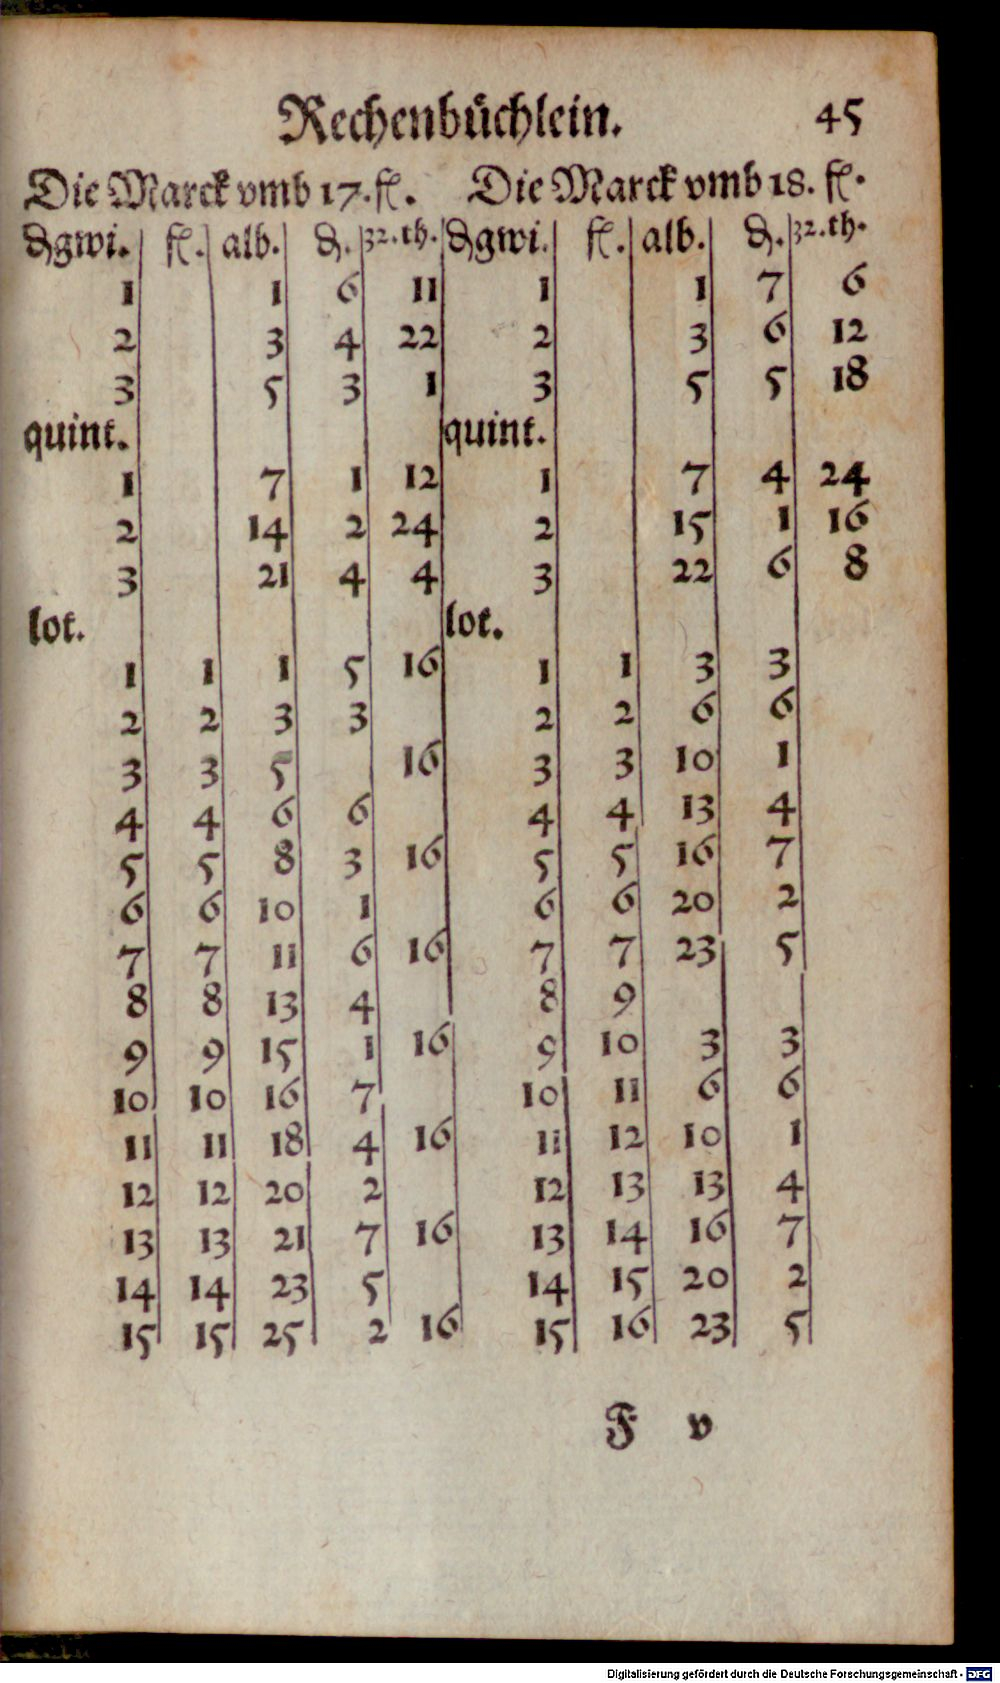 Rechenbüchlein. 45
Die Marck vmb 17. fl. Die Marck vmb 18. fl.
₰gwi. fl. alb. ₰. 32.th. ₰gwi. fl. alb. ₰. 32.th.
1 1 6 11 1 1 7 6
2 3 4 22 2 3 6 12
3 5 3 1 3 5 5 18
quint. quint.
1 7 1 12 1 7 4 24
2 14 2 24 2 15 1 16
3 21 4 4 3 22 6 8
lot. lot.
1 1 1 5 16 1 1 3 3
2 2 3 3 2 2 6 6
3 3 5 16 3 3 10 1
4 4 6 6 4 4 13 4
5 5 8 3 16 5 5 16 7
6 6 10 1 6 6 20 2
7 7 11 6 16 7 7 23 5
8 8 13 4 8 9
9 9 15 1 16 9 10 3 3
10 10 16 7 10 11 6 6
11 11 18 4 16 11 12 10 1
12 12 20 2 12 13 13 4
13 13 21 7 16 13 14 16 7
14 14 23 5 14 15 20 2
15 15 25 2 16 15 16 23 5
F v
Digitalisierung gefördert durch die Deutsche Forschungsgemeinschaft - DFG